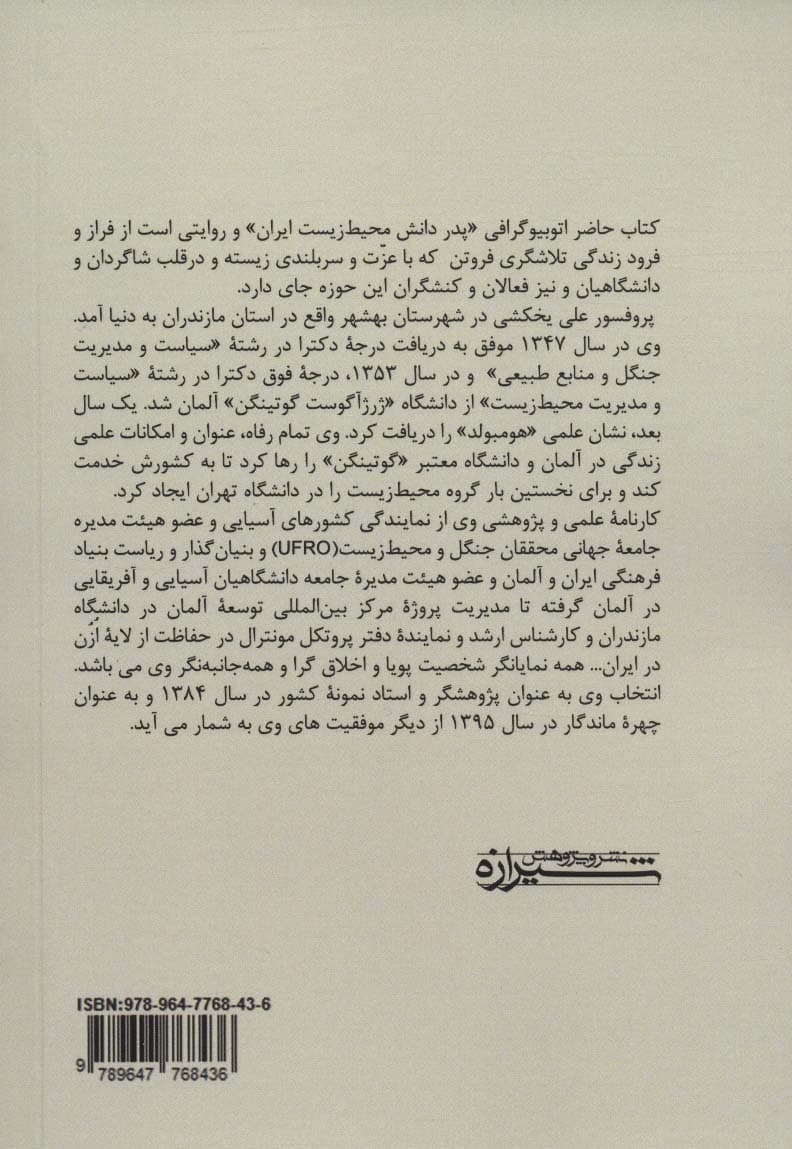 کتاب حاضر اتوبیوگرافی «پدر دانش محیط‌زیست ایران» و روایتی است از فراز و
فرود زندگی تلاشگری فروتن که با عزّت و سربلندی زیسته و درقلب شاگردان و
دانشگاهیان و نیز فعالان و کنشگران این حوزه جای دارد.
پروفسور علی یخکشی در شهرستان بهشهر واقع در استان مازندران به دنیا آمد.
وی در سال ۱۳۴۷ موفق به دریافت درجهٔ دکترا در رشتهٔ «سیاست و مدیریت
جنگل و منابع طبیعی» و در سال ۱۳۵۳، درجهٔ فوق دکترا در رشتهٔ «سیاست
و مدیریت محیط‌زیست» از دانشگاه «ژرژآگوست گوتینگن» آلمان شد. یک سال
بعد، نشان علمی «هومبولد» را دریافت کرد. وی تمام رفاه، عنوان و امکانات علمی
زندگی در آلمان و دانشگاه معتبر «گوتینگن» را رها کرد تا به کشورش خدمت
کند و برای نخستین بار گروه محیط‌زیست را در دانشگاه تهران ایجاد کرد.
کارنامهٔ علمی و پژوهشی وی از نمایندگی کشورهای آسیایی و عضو هیئت مدیره
جامعهٔ جهانی محققان جنگل و محیط‌زیست(UFRO) و بنیان‌گذار و ریاست بنیاد
فرهنگی ایران و آلمان و عضو هیئت مدیرهٔ جامعه دانشگاهیان آسیایی و آفریقایی
در آلمان گرفته تا مدیریت پروژهٔ مرکز بین‌المللی توسعهٔ آلمان در دانشگاه
مازندران و کارشناس ارشد و نمایندهٔ دفتر پروتکل مونترال در حفاظت از لایهٔ اُزُن
در ایران... همه نمایانگر شخصیت پویا و اخلاق گرا و همه‌جانبه‌نگر وی می باشد.
انتخاب وی به عنوان پژوهشگر و استاد نمونهٔ کشور در سال ۱۳۸۴ و به عنوان
چهرهٔ ماندگار در سال ۱۳۹۵ از دیگر موفقیت های وی به شمار می آید.
نشر و پژوهش
شیرازه
ISBN:978-964-7768-43-6
9 789647 768436